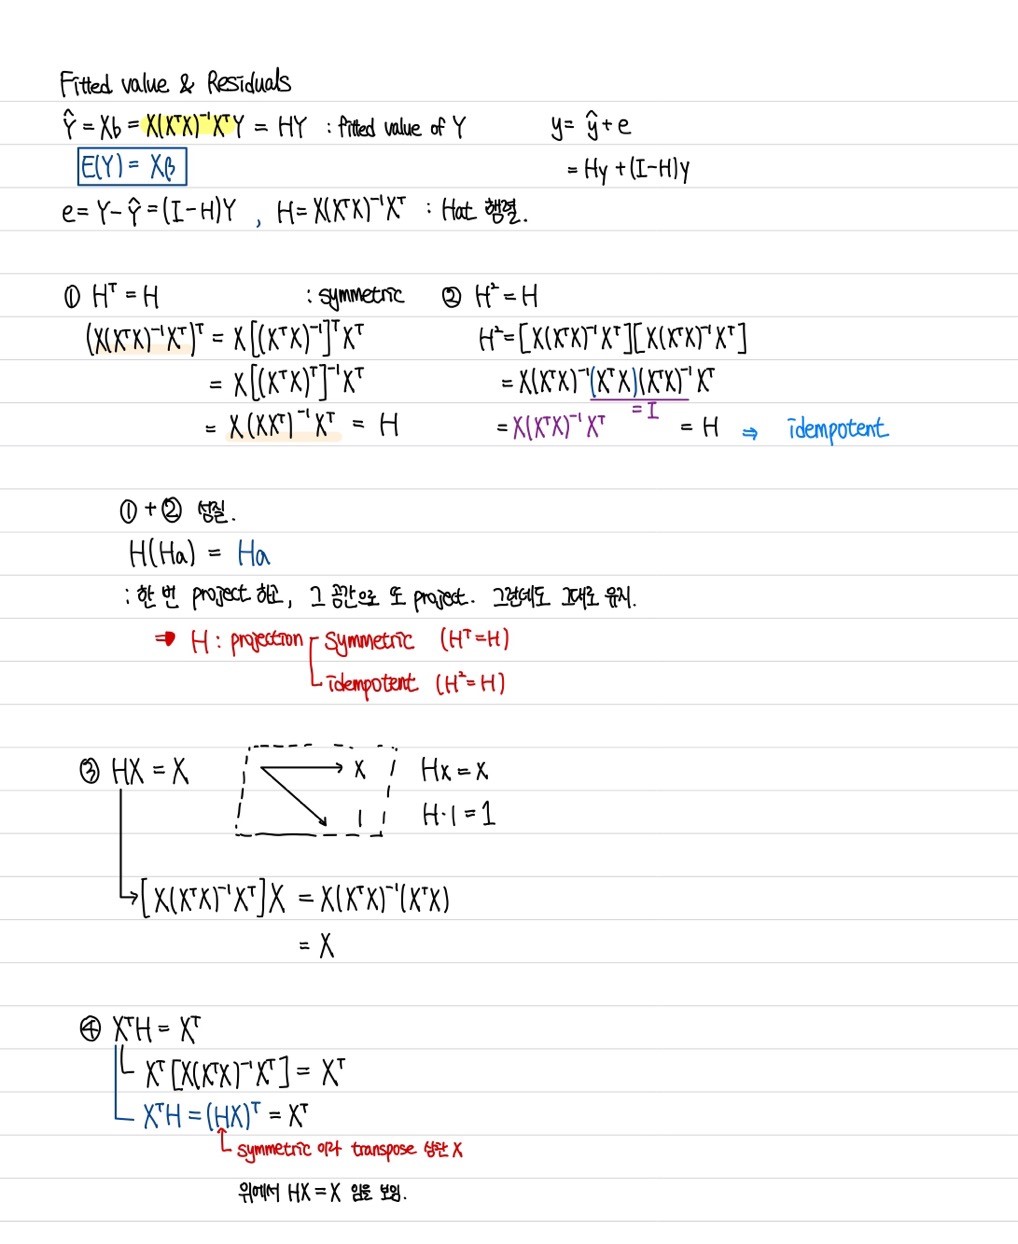 Fitted value & Residuals
Ŷ = Xb = X(XᵀX)⁻¹XᵀY = HY : fitted value of Y
y = ŷ + e
E(Y) = Xβ
= Hy + (I-H)y
e = Y - Ŷ = (I-H)Y , H = X(XᵀX)⁻¹Xᵀ : Hat 행렬.
① Hᵀ = H : symmetric
(X(XᵀX)⁻¹Xᵀ)ᵀ = X[(XᵀX)⁻¹]ᵀXᵀ
= X[(XᵀX)ᵀ]⁻¹Xᵀ
= X(XXᵀ)⁻¹Xᵀ = H
② H² = H
H² = [X(XᵀX)⁻¹Xᵀ][X(XᵀX)⁻¹Xᵀ]
= X(XᵀX)⁻¹(XᵀX)(XᵀX)⁻¹Xᵀ
= I
= X(XᵀX)⁻¹Xᵀ = H ⇒ idempotent
① + ② 성질.
H(Ha) = Ha
: 한 번 project 하고, 그 공간으로 또 project. 그런데도 그대로 유지.
⇒ H : projection symmetric (Hᵀ=H)
idempotent (H²=H)
③ HX = X
x
1
Hx = x
H·1 = 1
[X(XᵀX)⁻¹Xᵀ]X = X(XᵀX)⁻¹(XᵀX)
= X
④ XᵀH = Xᵀ
Xᵀ[X(XᵀX)⁻¹Xᵀ] = Xᵀ
XᵀH = (HX)ᵀ = Xᵀ
symmetric 이라 transpose 상관 X
위에서 HX = X 임을 보임.